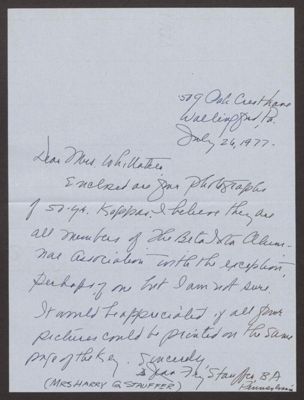 509 Oak Crest Lane
Wallingford, Pa.
July 26, 1977.
Dear Mrs. Whittaker
Enclosed are four photographs
of 50-yr. Kappas. I believe they are
all members of the Beta Iota Alum-
nae Association with the exception,
perhaps of one but I am not sure.
It would be appreciated if all four
pictures could be printed on the same
page of the Key. Sincerely
Fry Stauffer, BA
(MRS HARRY G. STAUFFER) Pennsylvania